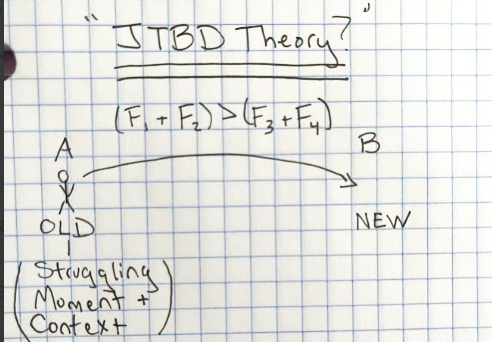 "JTBD Theory?"
(F₁ + F₂) > (F₃ + F₄)
A
B
OLD
NEW
(Struggling
Moment +
Context)